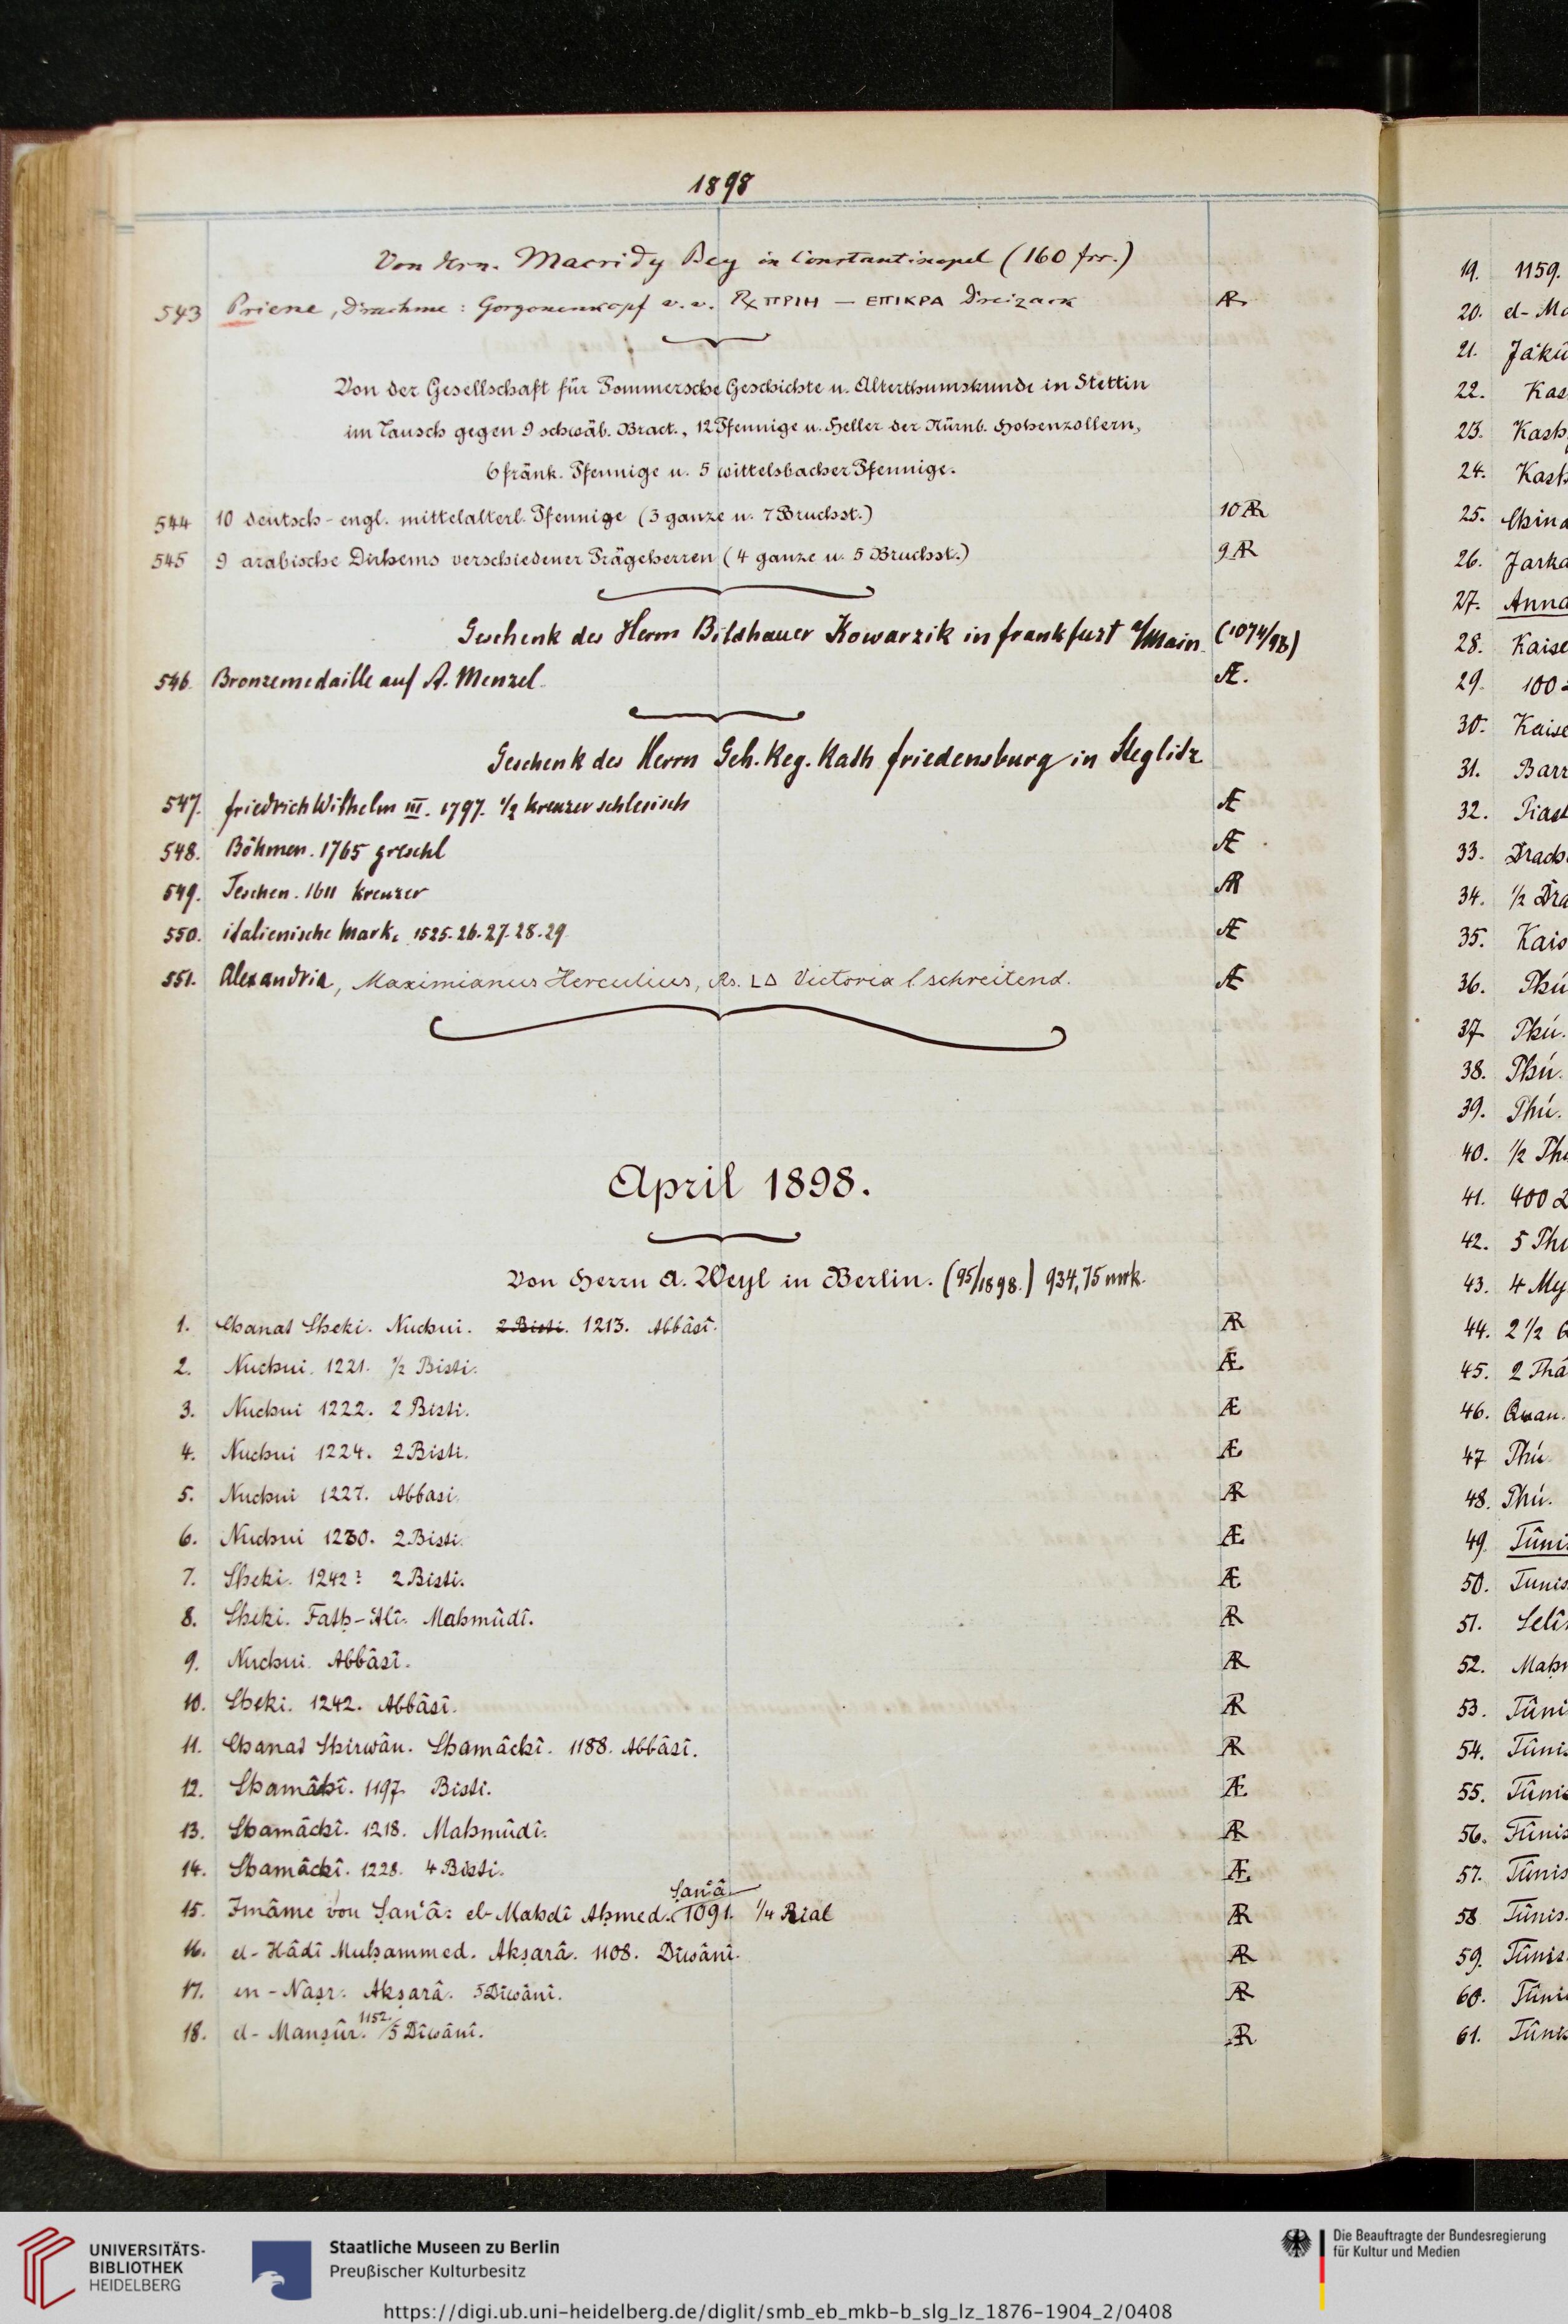 1898
Von Hrn. Macridy Bey in Constantinopel (160 frc.)
543 Priene, Drachme: Gorgonenkopf v. v. Rx ΠΡΙΗ — ΕΠΙΚΡΑ Dreizack AR
Von der Gesellschaft für Pommersche Geschichte u. Alterthumskunde in Stettin
im Tausch gegen 9 schwäb. Bract., 12 Pfennige u. Heller der Nürnb. Hohenzollern,
6 fränk. Pfennige u. 5 wittelsbacher Pfennige.
544 10 deutsch-engl. mittelalterl. Pfennige (3 ganze u. 7 Bruchst.) 10 AR
545 9 arabische Dirhems verschiedener Prägeherren (4 ganze u. 5 Bruchst.) 9 AR
Geschenk des Herrn Bildhauer Kowarzik in Frankfurt a/Main. (1074/98)
546. Bronzemedaille auf A. Menzel. Æ.
Geschenk des Herrn Geh. Reg. Rath Friedensburg in Steglitz
547. Friedrich Wilhelm III. 1797. 1/2 Kreuzer schlesisch Æ
548. Böhmen. 1765 Gröschl Æ
549. Teschen. 1611 Kreuzer AR
550. italienische Mark. 1525. 26. 27. 28. 29. Æ
551. Alexandria, Maximianus Herculius, Rs. LΔ Victoria l. schreitend. Æ
April 1898.
Von Herrn A. Weyl in Berlin. (95/1898.) 934,75 mrk.
1. Chanat Sheki. Nuchui. 2 Bisti. 1213. Abbâsî. AR
2. Nuchui. 1221. 1/2 Bisti. Æ
3. Nuchui 1222. 2 Bisti. Æ
4. Nuchui 1224. 2 Bisti. Æ
5. Nuchui 1227. Abbasi. AR
6. Nuchui 1230. 2 Bisti. Æ
7. Sheki. 1242? 2 Bisti. Æ
8. Sheki. Fatḥ-ʿAlî. Maḥmûdî. AR
9. Nuchui. Abbâsî. AR
10. Sheki. 1242. Abbâsî. AR
11. Chanat Shirwân. Shamâchî. 1188. Abbâsî. AR
12. Shamâchî. 1197. Bisti. Æ
13. Shamâchî. 1218. Maḥmûdî. AR
14. Shamâchî. 1228. 4 Bisti. Æ
Ṣanʿâ
15. Imâme von Ṣanʿâ: el-Mahdî Aḥmed. 1091. 1/4 Rial AR
16. el-Hâdî Muḥammed. Akṣarâ. 1108. Dîwânî. AR
17. en-Naṣr. Akṣarâ. 5 Dîwânî. AR
18. el-Manṣûr. 1152. 5 Dîwânî. AR
19. 1159.
20. el-Ma
21. Jâkû
22. Kas
23. Kash
24. Kash
25. China
26. Jarka
27. Anna
28. Kaise
29. 100
30. Kaise
31. Barr
32. Piast
33. Drach
34. 1/2 Dra
35. Kais
36. Thú
37. Thú.
38. Thú.
39. Thú.
40. 1/2 Th
41. 400
42. 5 Thú
43. 4 My
44. 2 1/2
45. 2 Thá
46. Quan.
47. Thú
48. Thú.
49. Tûni
50. Tunis
51. Selî
52. Maḥ
53. Tûni
54. Tûnis
55. Tûnis
56. Tûnis
57. Tûnis
58. Tûnis.
59. Tûnis
60. Tûni
61. Tûnis
UNIVERSITÄTS-
BIBLIOTHEK
HEIDELBERG
Staatliche Museen zu Berlin
Preußischer Kulturbesitz
Die Beauftragte der Bundesregierung
für Kultur und Medien
https://digi.ub.uni-heidelberg.de/diglit/smb_eb_mkb-b_slg_lz_1876-1904_2/0408